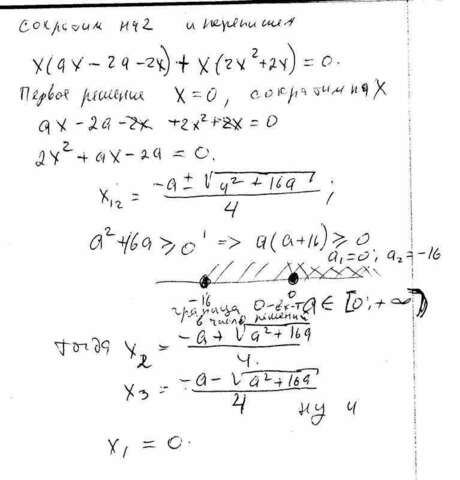 сократим на 2 и перепишем
x(ax - 2a - 2x) + x(2x² + 2x) = 0.
Первое решение x = 0, сократим на x
ax - 2a - 2x + 2x² + 2x = 0
2x² + ax - 2a = 0.
x₁₂ = (-a ± √(a² + 16a)) / 4 ;
a² + 16a ≥ 0 ; => a(a+16) ≥ 0
a₁ = 0 ; a₂ = -16
-16 0
граница 0 - вх-т a ∈ [0 ; + ∞)
в число решений
тогда x₂ = (-a + √(a² + 16a)) / 4.
x₃ = (-a - √(a² + 16a)) / 4
ну и
x₁ = 0.